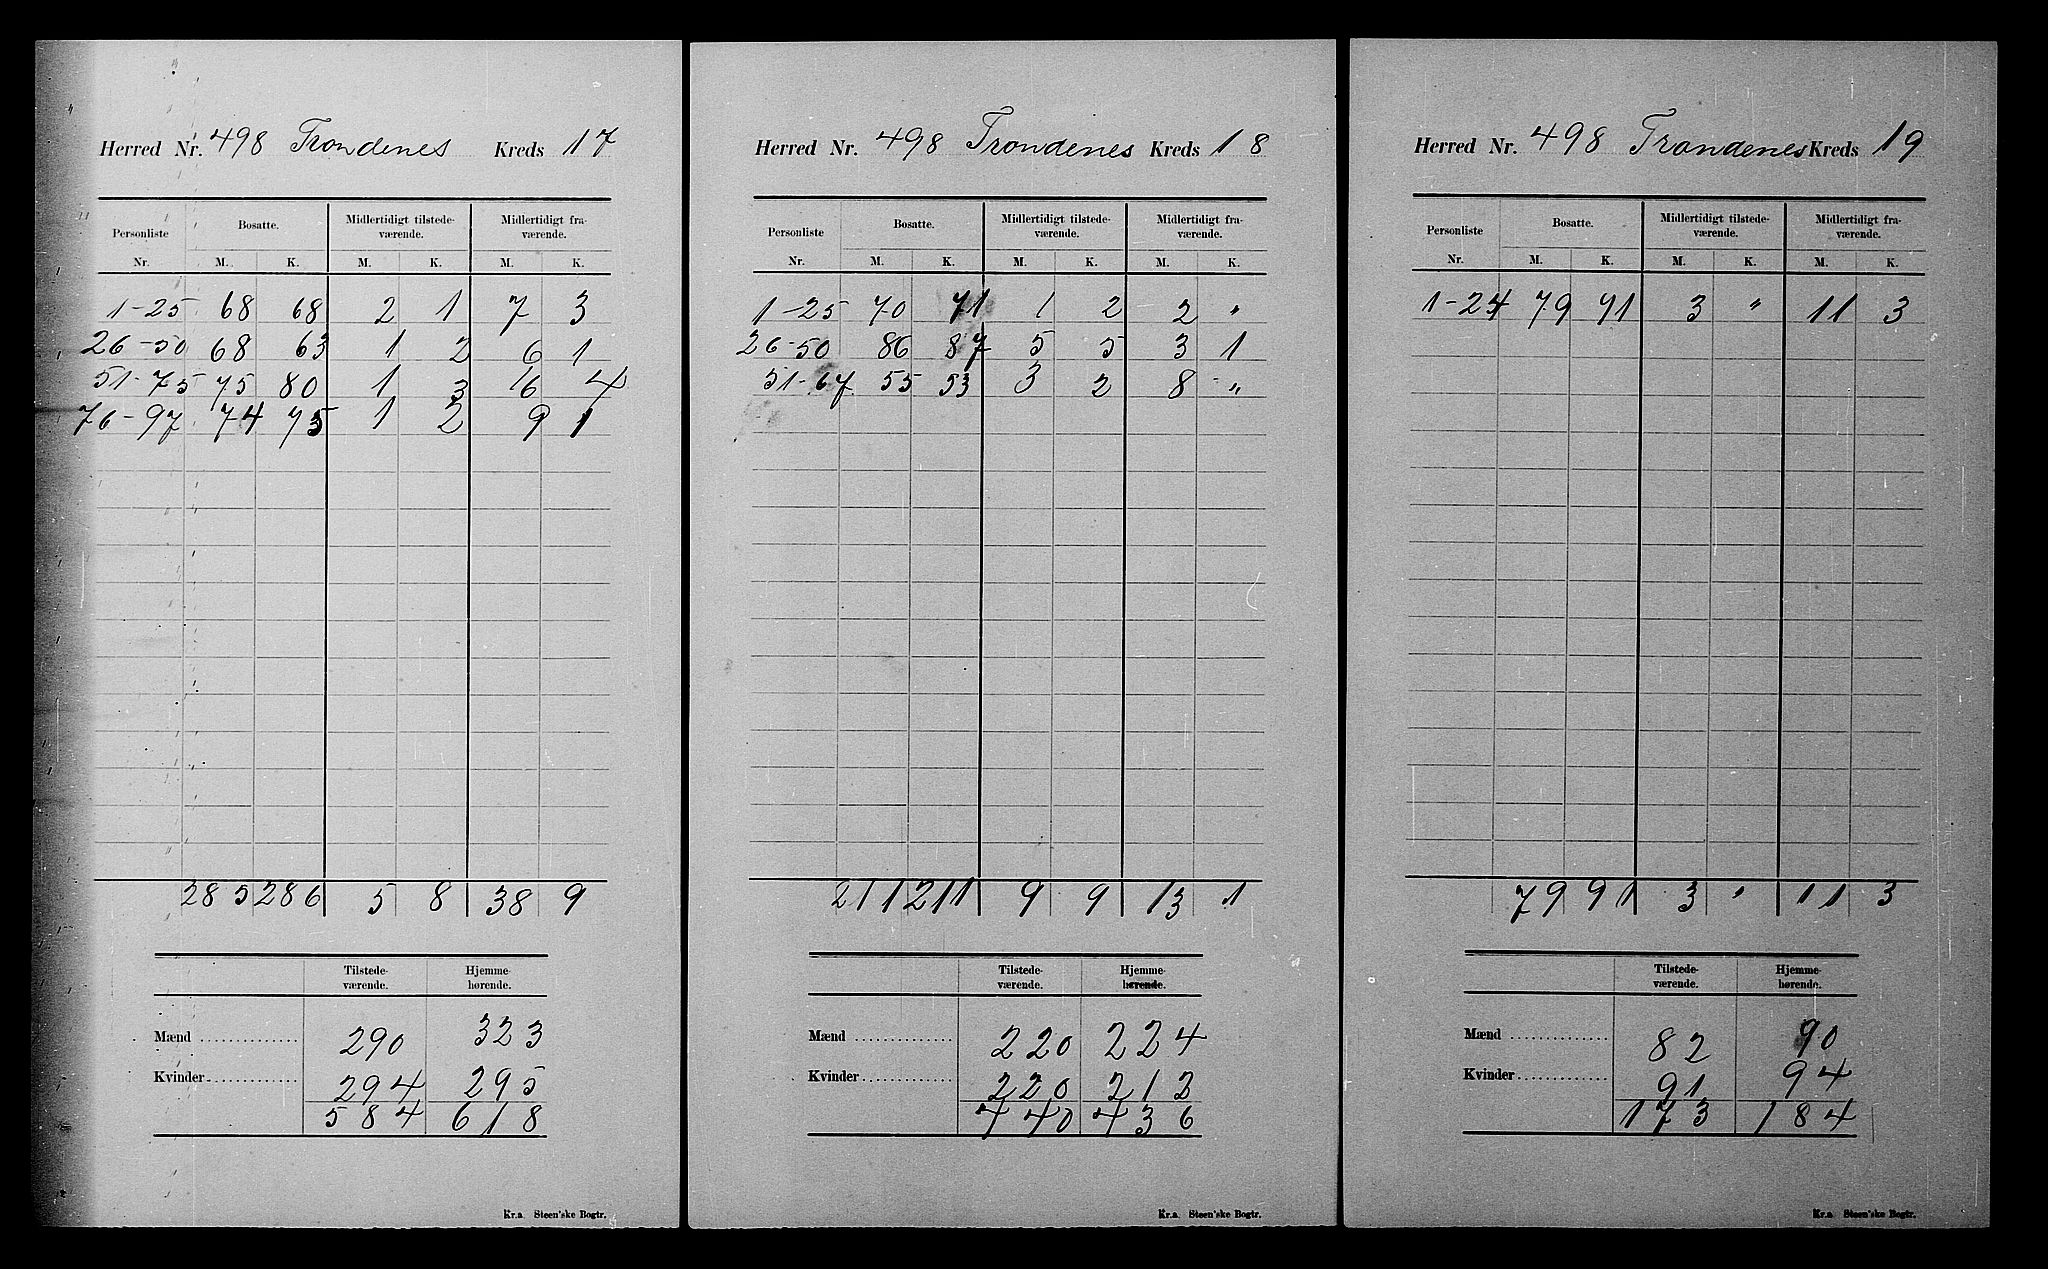 Herred Nr. 498 Trondenes Kreds 17
Personliste Bosatte. Midlertidigt tilstede- Midlertidigt fra-
værende. værende.
Nr. M. K. M. K. M. K.
1-25 68 68 2 1 7 3
26-50 68 63 1 2 6 1
51-75 75 80 1 3 16 4
76-97 74 75 1 2 9 1
285 286 5 8 38 9
Tilstede- Hjemme-
værende. hørende.
Mænd 290 323
Kvinder 294 295
584 618
Kr.a Steen'ske Bogtr.
Herred Nr. 498 Trondenes Kreds 18
Personliste Bosatte. Midlertidigt tilstede- Midlertidigt fra-
værende. værende.
Nr. M. K. M. K. M. K.
1-25 70 71 1 2 2 "
26-50 86 87 5 5 3 1
51-67 55 53 3 2 8 "
211 211 9 9 13 1
Tilstede- Hjemme-
værende. hørende.
Mænd 220 224
Kvinder 220 212
440 436
Kr.a Steen'ske Bogtr.
Herred Nr. 498 Trondenes Kreds 19
Personliste Bosatte. Midlertidigt tilstede- Midlertidigt fra-
værende. værende.
Nr. M. K. M. K. M. K.
1-24 79 91 3 " 11 3
79 91 3 " 11 3
Tilstede- Hjemme-
værende. hørende.
Mænd 82 90
Kvinder 91 94
173 184
Kr.a Steen'ske Bogtr.